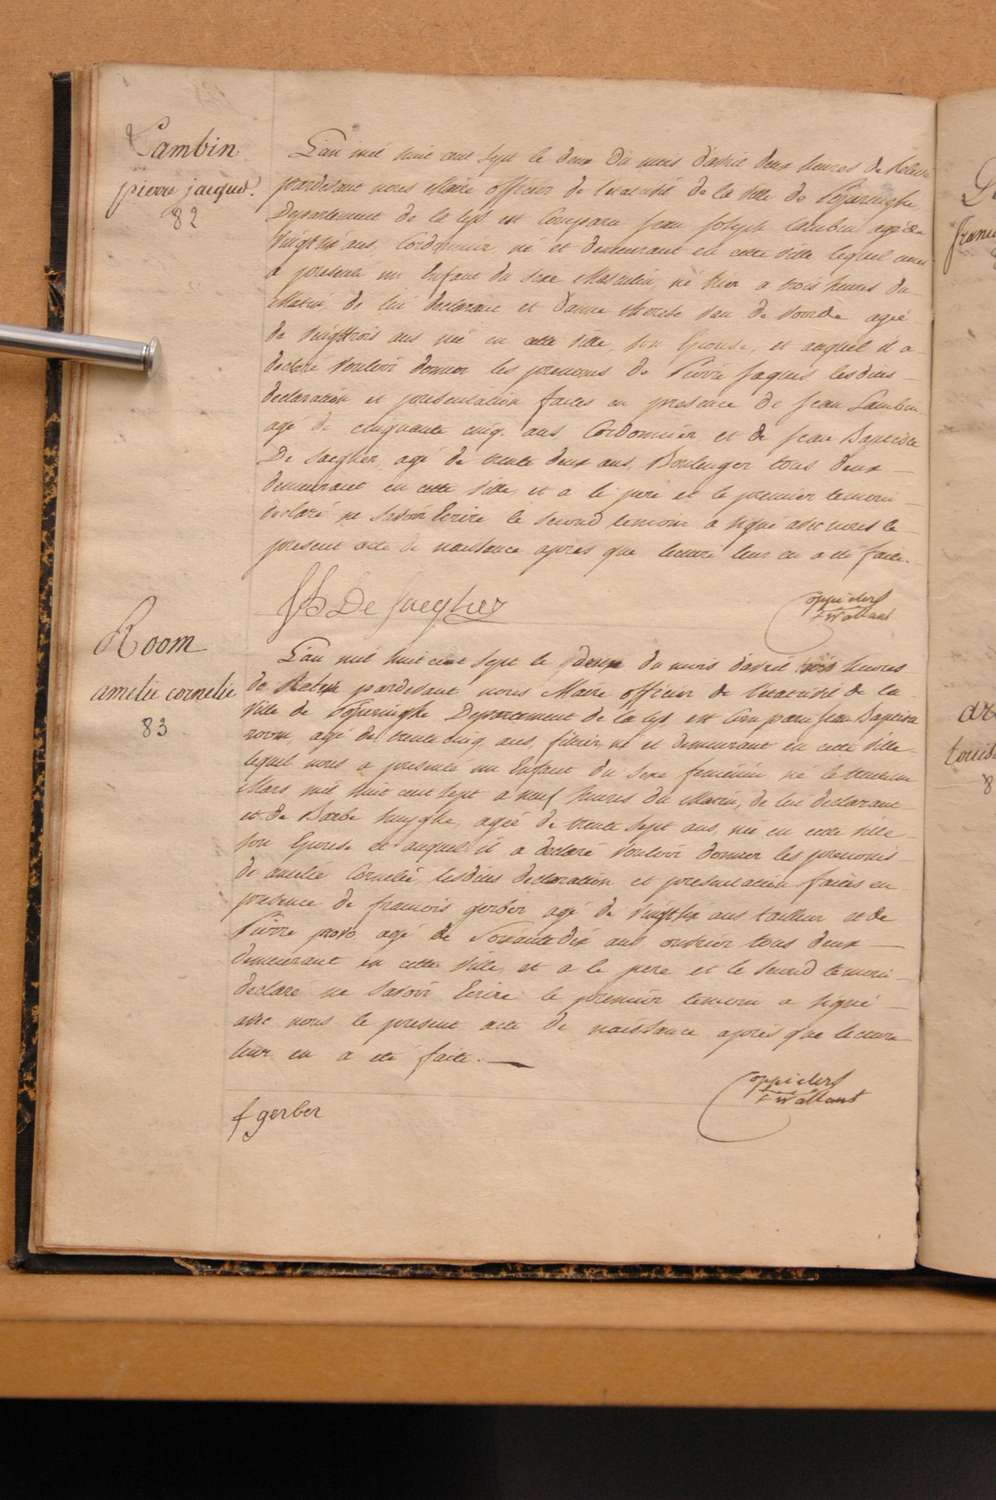 Lambin
pierre jacques.
82
L'an mil huit cent sept le deux du mois d'avril deux heures de Relevée
pardevant nous Maire officier de l'etatcivil de la ville de Poperinghe
Departement de la Lys est Comparu Jean Joseph Lambin agé de
vingt six ans, Cordonnier, né et demeurant en cette ville lequel nous
a presenté un Enfant du sexe Masculin, né hier a trois heures du
Matin, de lui declarant et d'anne therese van de voorde agée
de vingttrois ans née en cette ville, son Epouse, et auquel il a
declaré vouloir donner les prenoms de Pierre Jaques lesdites
declaration et presentation faites en presence de Jean Lambin
agé de cinquante cinq ans Cordonnier et de Jean Baptiste
De Jaegher, agé de trente deux ans, Boulenger tous deux
demeurant en cette ville, et a le pere et le premier temoin
declaré ne savoir Ecrire le second temoin a signé avec nous le
present acte de naissance apres que lecture leur en a eté faite.
JB De Jaegher
Room
amelie cornelie
83
L'an mil huit cent sept le deux du mois d'avril trois heures
de Relevée pardevant nous Maire officier de l'etatcivil de la
ville de Poperinghe Departement de la Lys est Comparu Jean Baptiste
room, agé de trente cinq ans, né et demeurant en cette ville
lequel nous a presenté un Enfant du sexe feminin né le trente un
Mars mil huit cent sept a neuf heures du Matin, de lui declarant
et de Barbe huyghe, agée de trente sept ans, née en cette ville
son Epouse et auquel il a declaré vouloir donner les prenoms
de amelie Cornelie lesdites declaration et presentation faites en
presence de francois gerber agé de vingtsix ans tailleur et de
Pierre agé de Soixantedix ans ouvrier tous deux
demeurant en cette ville, et a le pere et le second temoin
declaré ne savoir Ecrire le premier temoin a signé
avec nous le present acte de naissance apres que lecture
leur en a eté faite.
f gerber